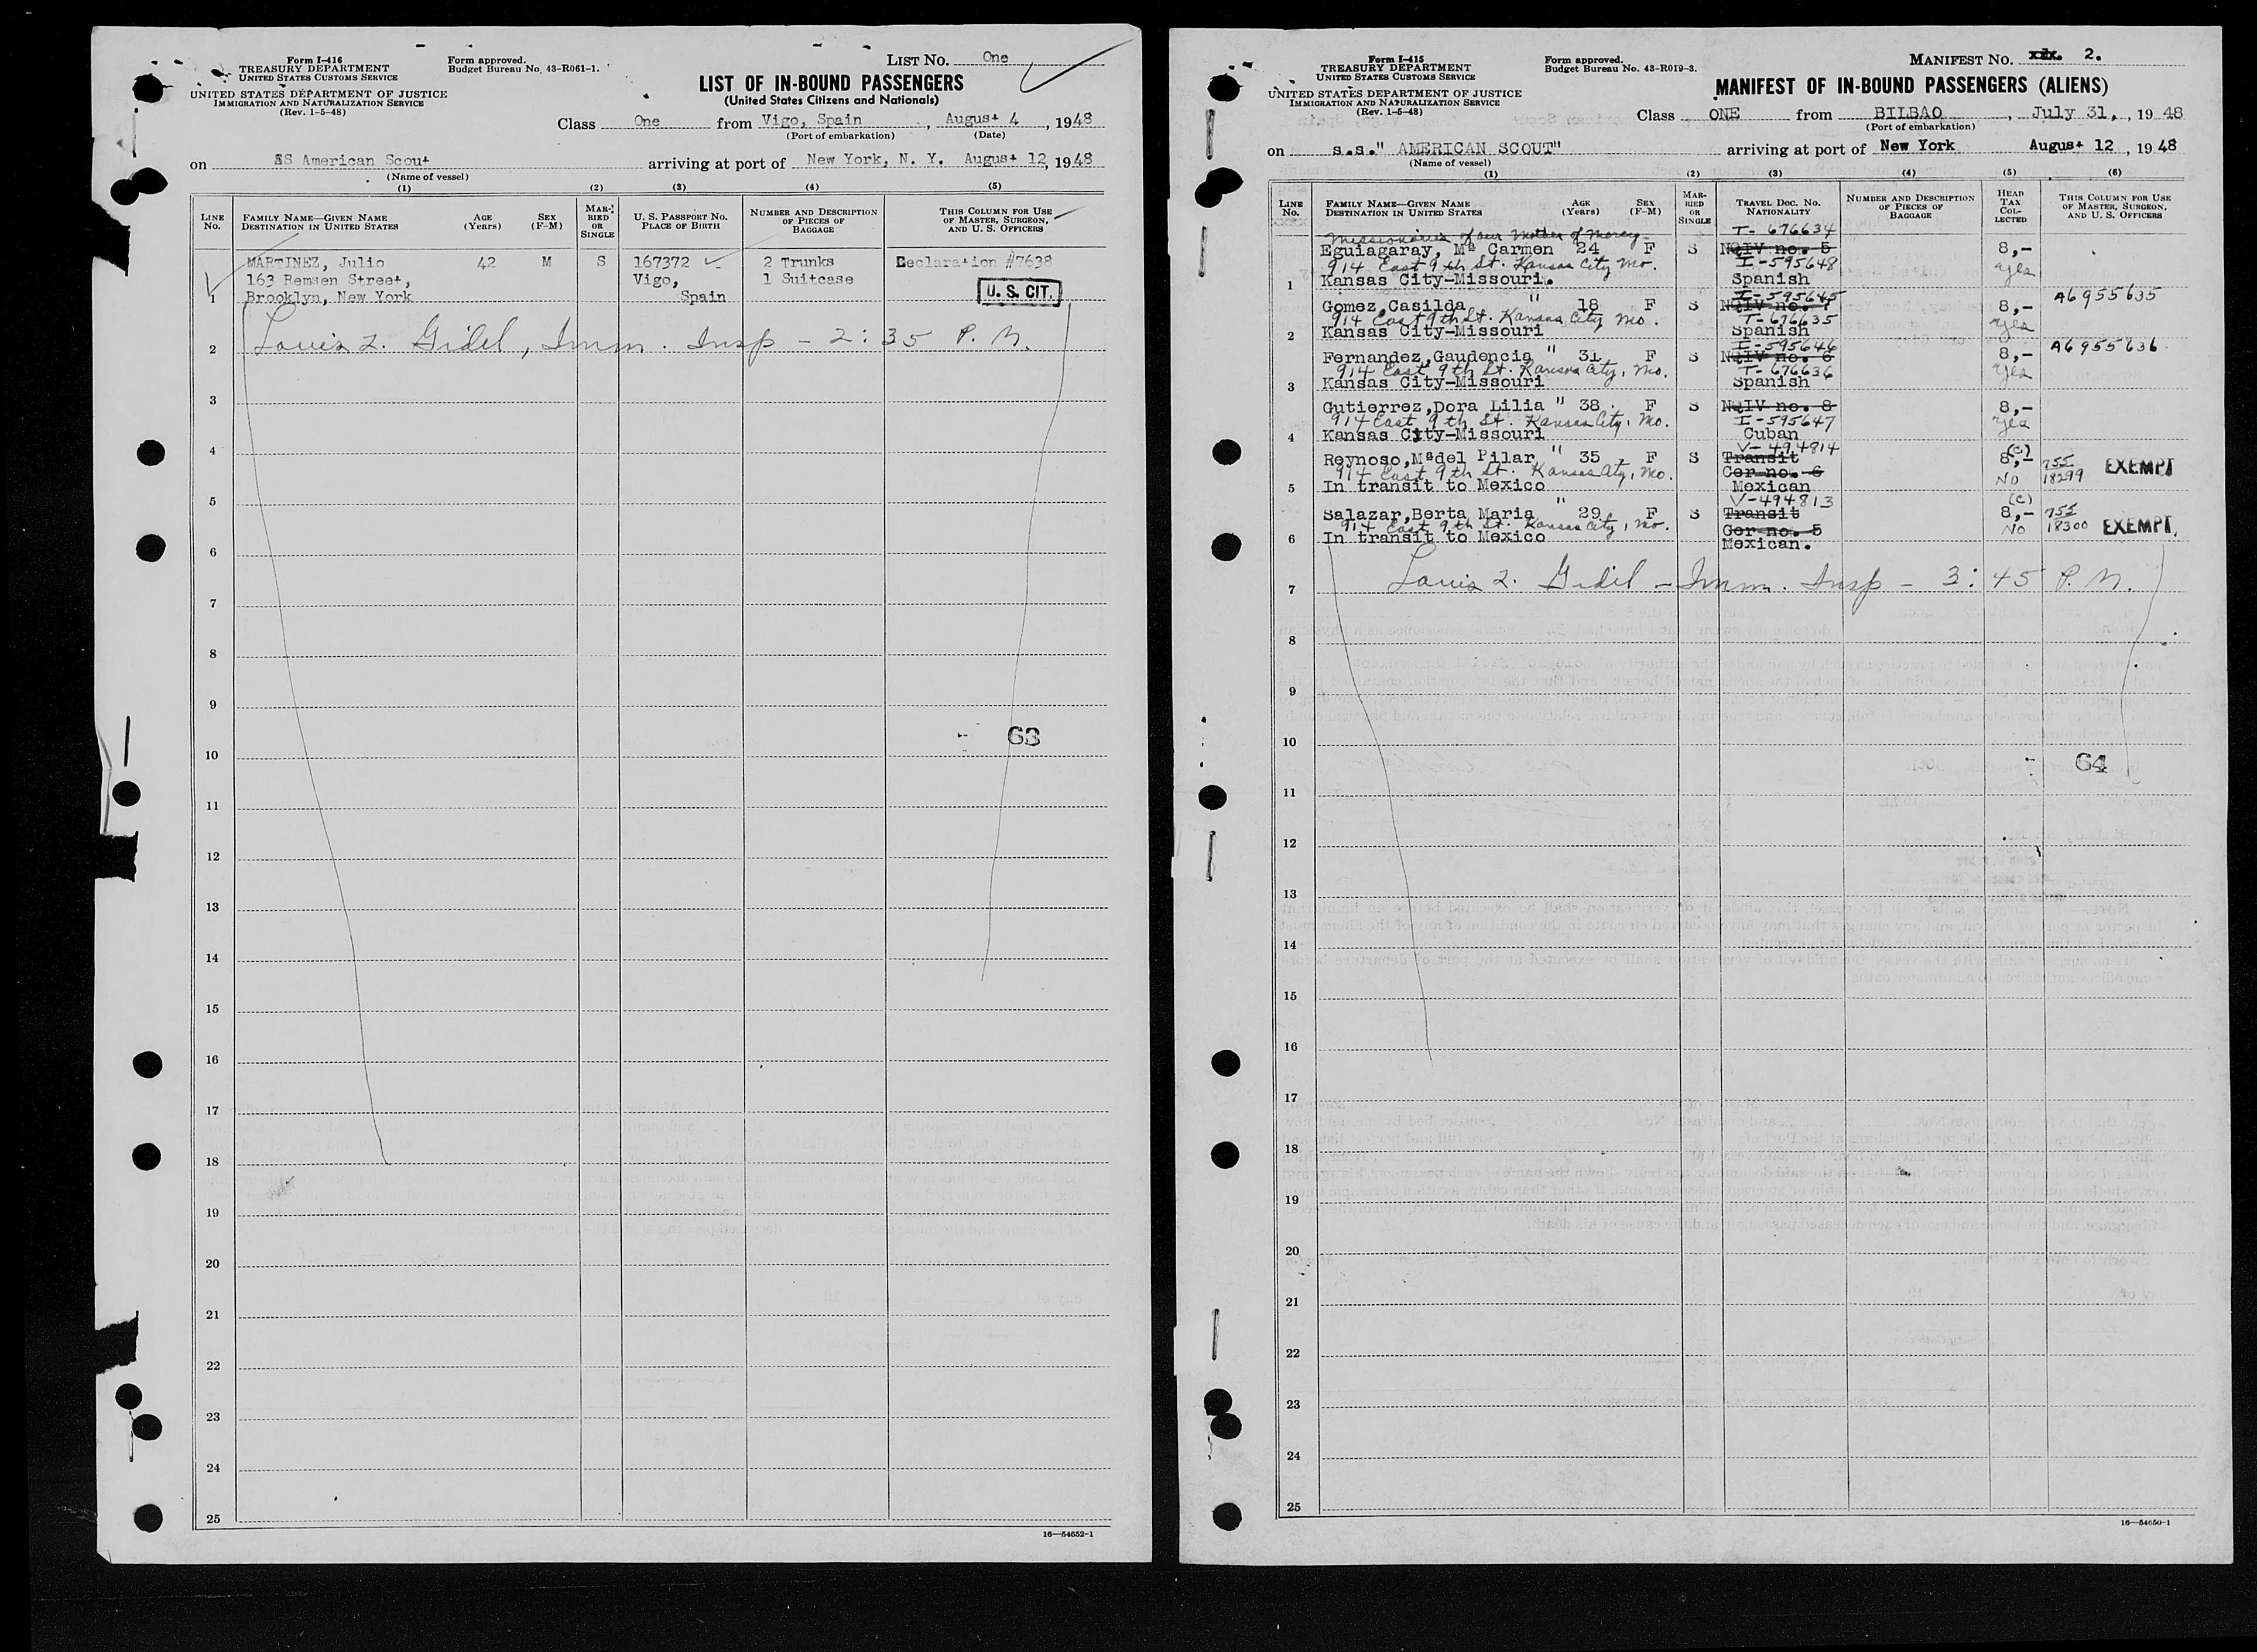 Form I-416
TREASURY DEPARTMENT
UNITED STATES CUSTOMS SERVICE
UNITED STATES DEPARTMENT OF JUSTICE
IMMIGRATION AND NATURALIZATION SERVICE
(Rev. 1-5-48)
Form approved.
Budget Bureau No. 43-R061-1.
LIST No. One
LIST OF IN-BOUND PASSENGERS
(United States Citizens and Nationals)
Class One from Vigo, Spain, August 4, 1948
(Port of embarkation) (Date)
on SS American Scout arriving at port of New York, N. Y. August 12, 1948
(Name of vessel)
(1) (2) (3) (4) (5)
LINE No. FAMILY NAME—GIVEN NAME DESTINATION IN UNITED STATES AGE (Years) SEX (F-M) MARRIED OR SINGLE U. S. PASSPORT NO. PLACE OF BIRTH NUMBER AND DESCRIPTION OF PIECES OF BAGGAGE THIS COLUMN FOR USE OF MASTER, SURGEON, AND U. S. OFFICERS
MARTINEZ, Julio 42 M S 167372 2 Trunks Declaration #7638
163 Remsen Street, Vigo, 1 Suitcase
1 Brooklyn, New York Spain U. S. CIT.
2 Louis Z. Gidel, Imm. Insp - 2:35 P. M.
3
4
5
6
7
8
9
63
10
11
12
13
14
15
16
17
18
19
20
21
22
23
24
25
16—54652-1
Form I-415
TREASURY DEPARTMENT
UNITED STATES CUSTOMS SERVICE
UNITED STATES DEPARTMENT OF JUSTICE
IMMIGRATION AND NATURALIZATION SERVICE
(Rev. 1-5-48)
Form approved.
Budget Bureau No. 43-R019-3.
MANIFEST No. 2.
MANIFEST OF IN-BOUND PASSENGERS (ALIENS)
Class ONE from BILBAO, July 31, 1948
(Port of embarkation)
on s.s." AMERICAN SCOUT" arriving at port of New York August 12, 1948
(Name of vessel)
(1) (2) (3) (4) (5) (6)
LINE No. FAMILY NAME—GIVEN NAME DESTINATION IN UNITED STATES AGE (Years) SEX (F-M) MARRIED OR SINGLE TRAVEL DOC. NO. NATIONALITY NUMBER AND DESCRIPTION OF PIECES OF BAGGAGE HEAD TAX COLLECTED THIS COLUMN FOR USE OF MASTER, SURGEON, AND U. S. OFFICERS
Missionaries of our Mother of Mercy T-676634
Eguilagaray, Mª Carmen 24 F S NQIV no. 5 8,-
914 East 9th St. Kansas City Mo. I-595648 yes
1 Kansas City-Missouri. Spanish
I-595645
Gomez,Casilda " 18 F S NQIV no. 7 8,- A6955635
914 East 9th St. Kansas City Mo. T-676635 yes
2 Kansas City-Missouri Spanish
I-595646
Fernandez,Gaudencia " 31 F S NQIV no. 6 8,- A6955636
914 East 9th St. Kansas City, Mo. T-676636 yes
3 Kansas City-Missouri Spanish
Gutierrez,Dora Lilia " 38 F S NQIV no. 8 8,-
914 East 9th St. Kansas City, Mo. I-595647 yes
4 Kansas City-Missouri Cuban
V-494814
Reynoso,Mªdel Pilar " 35 F S Transit 8,- (C) 755 EXEMPT
914 East 9th St. Kansas City, Mo. Cer no. 6 No 18299
5 In transit to Mexico Mexican
" V-494813 (C)
Salazar,Berta Maria 29 F S Transit 8,- 755
914 East 9th St. Kansas City, Mo. Cer no. 5 No 18300 EXEMPT
6 In transit to Mexico Mexican.
7 Louis Z. Gidel - Imm. Insp - 3:45 P. M.
8
9
10
64
11
12
13
14
15
16
17
18
19
20
21
22
23
24
25
16—54650-1